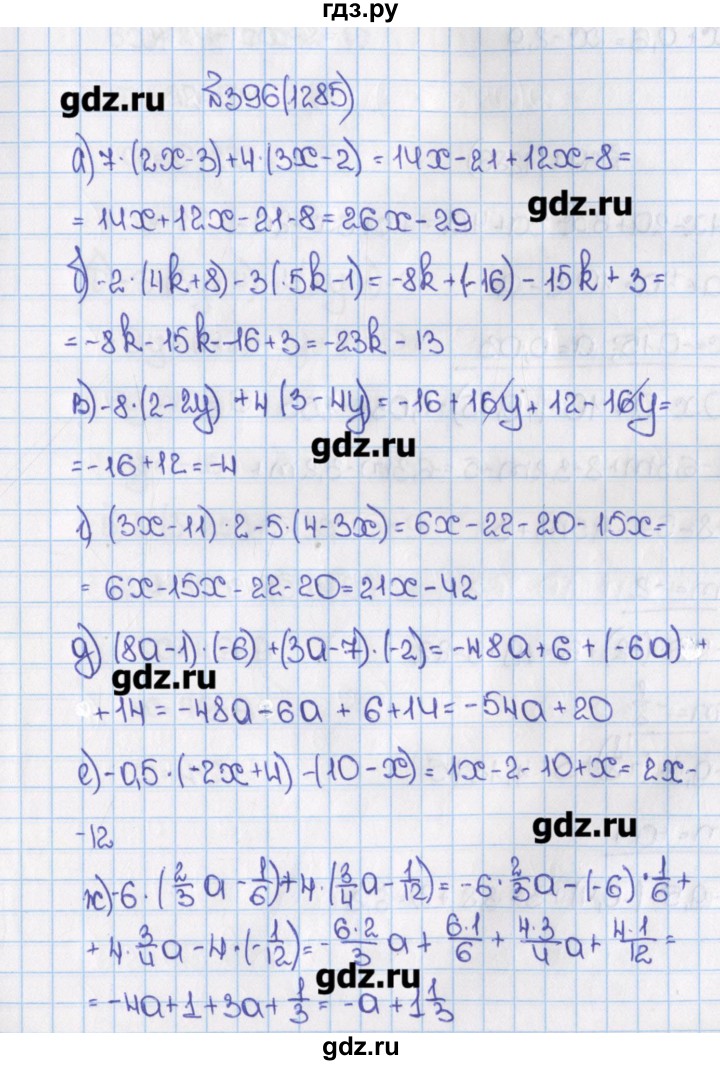 гдз.ру
gdz.ru
№396(1285)
а) 7·(2x-3)+4·(3x-2) = 14x-21+12x-8=
= 14x+12x-21-8=26x-29
gdz.ru
б) -2·(4k+8)-3(·5k-1)= -8k+(-16)-15k+3=
= -8k-15k-16+3=-23k-13
в) -8·(2-2y)+4(3-4y)=-16+16y+12-16y=
gdz.ru
=-16+12=-4
г) (3x-11)·2-5·(4-3x)=6x-22-20-15x=
= 6x-15x-22-20=21x-42
д) (8a-1)·(-6)+(3a-7)·(-2)=-48a+6+(-6a)+
gdz.ru
+14=-48a-6a+6+14=-54a+20
е) -0,5·(-2x+4)-(10-x)=1x-2-10+x=2x-
-12
gdz.ru
ж) -6·(2/3a-1/6)+4·(3/4a-1/12)=-6·2/3a-(-6)·1/6+
+4·3/4a-4·(-1/12)=-6·2/3a+6·1/6+4·3/4a+4·1/12=
gdz.ru
=-4a+1+3a+1/3=-a+1 1/3
gdz.ru